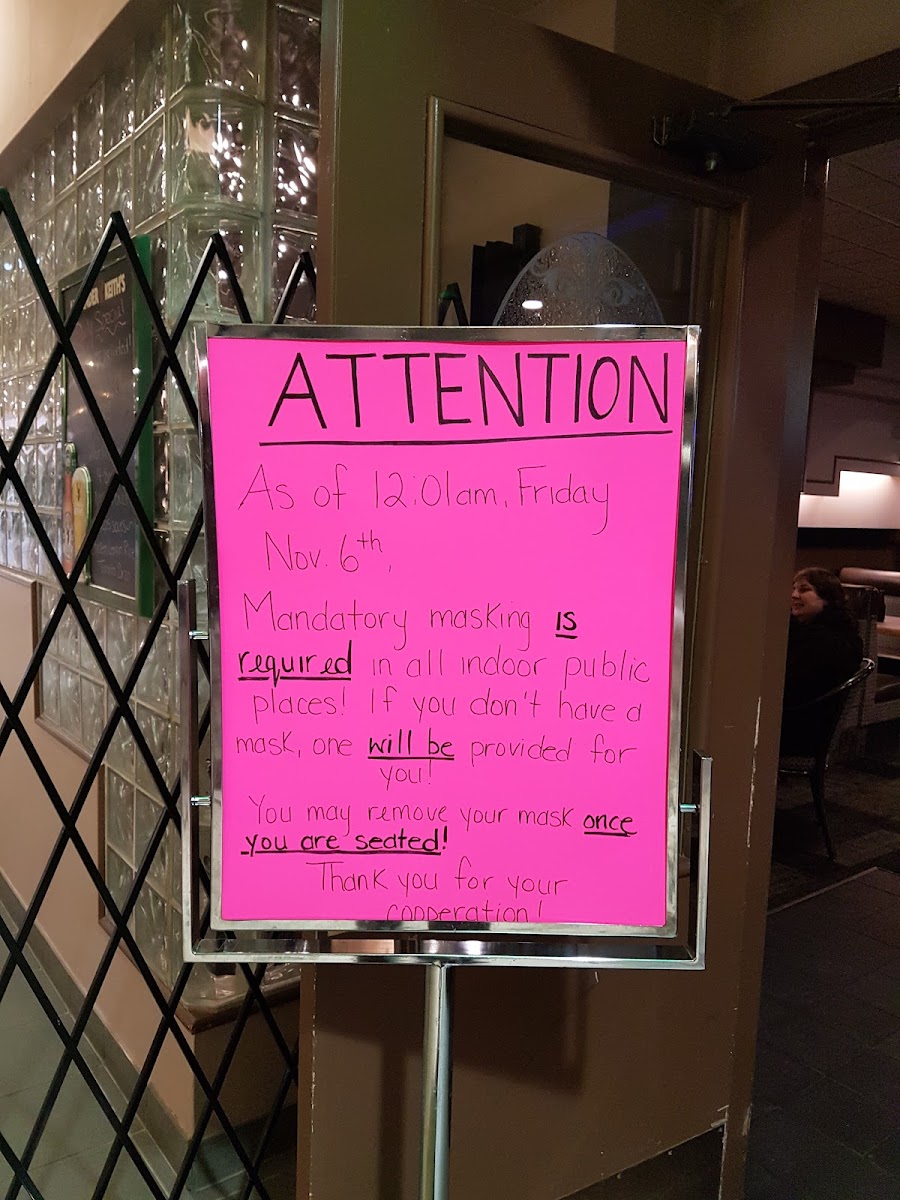 ATTENTION
As of 12:01am, Friday
Nov. 6th,
Mandatory masking is
required in all indoor public
places! If you don't have a
mask, one will be provided for
you!
You may remove your mask once
you are seated!
Thank you for your
cooperation!
KEITH'S